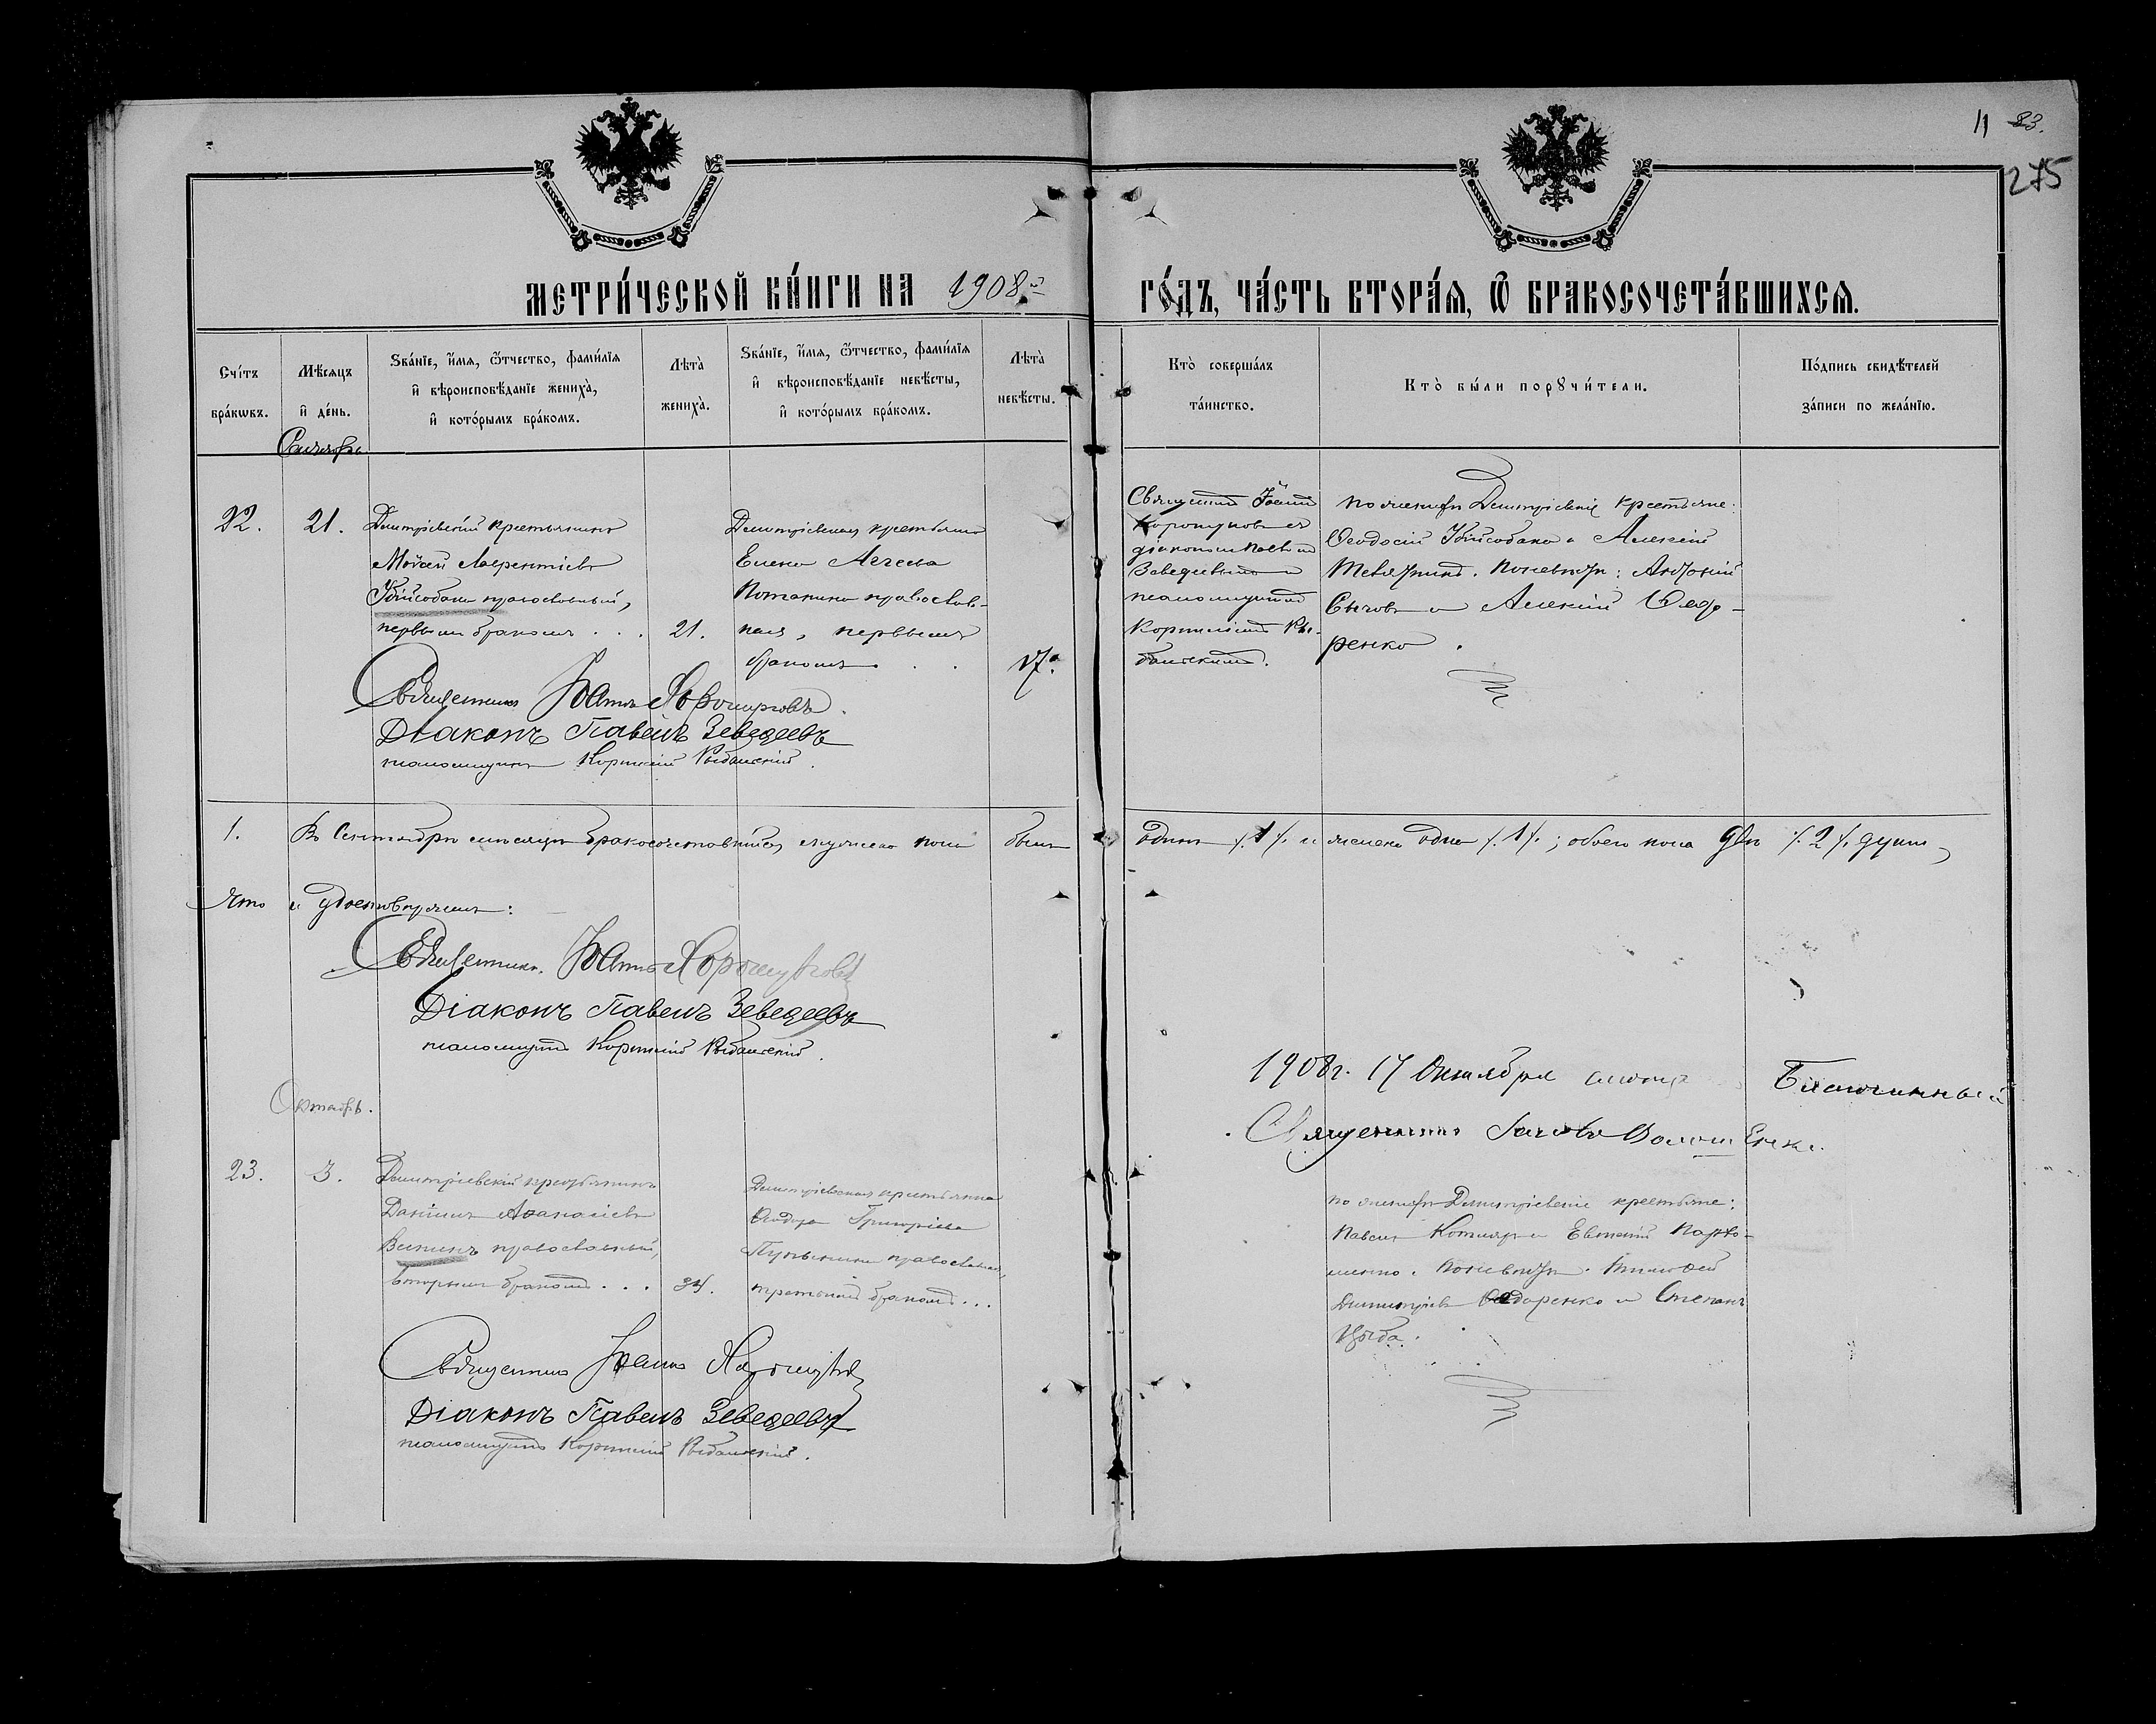 11 83.
275
МЕТРИ́ЧЕСКОЙ КНИ́ГИ НА 1908й
ГО́ДЪ, ЧА́СТЬ ВТОРА́Я, Ѿ БРАКОСОЧЕТА́ВШИХСЯ.
Сче́тъ
бра́кѡвъ.
Мѣ́сяцъ
и҆ де́нь.
Ѕва́нїе, и҆́мя, ѻ҆́тчество, фами́лїя
и҆ вѣроисповѣ́данїе жениха̀,
и҆ кото́рымъ бра́комъ.
Лѣта̀
жениха̀.
Ѕва́нїе, и҆́мя, ѻ҆́тчество, фами́лїя
и҆ вѣроисповѣ́данїе невѣ́сты,
и҆ кото́рымъ бра́комъ.
Лѣта̀
невѣ́сты.
Кто̀ соверша́лъ
та́инство.
Кто̀ бы́ли порꙋчи́тели.
По́дпись свидѣ́телей
за́писи по жела́нїю.
Сентябрь
22.
21.
Димитріевскій крестьянинъ
Мойсей Лаврентіевъ
Убійсобака православный,
первымъ бракомъ . . .
21.
Димитріевская крестьянка
Елена
Потапина православ-
ная, первымъ
бракомъ . . .
17.
Священникъ Іоаннъ
Хорошуновъ съ
діакономъ Павломъ
Зеведеевымъ и
псаломщикомъ
.
по женихѣ Димитріевскіе крестьяне:
Ѳеодосій Убійсобака и Алексій
. по невѣстѣ: Антоній
Сычовъ и Алексій Ѳедо-
ренко.
Священникъ Іоаннъ Хорошуновъ.
Діаконъ Павелъ Зеведеевъ
псаломщикъ .
1. Въ Сентябрѣ мѣсяцѣ бракосочетавшихся мужеска пола было одинъ /.1/. и женска одна /.1/.; обоего пола двѣ /.2/. души,
что и удостовѣряемъ:
Священникъ Іоаннъ Хорошуновъ
Діаконъ Павелъ Зеведеевъ
псаломщикъ .
1908 г. 17 Октября Благочинный
Священникъ .
Октябрь.
23.
3.
Димитріевскій крестьянинъ
Даніилъ Аѳанасіевъ
православный,
вторымъ бракомъ . . .
34.
Димитріевская крестьянка
Ѳеодора Григоріева
православная,
третьимъ бракомъ . . .
по женихѣ Димитріевскіе крестьяне:
Павелъ Котляръ и Евгеній Пархо-
менко. по невѣстѣ: Тимоѳей
Димитріевъ Ѳедоренко и Степанъ
Цыба.
Священникъ Іоаннъ Хорошуновъ
Діаконъ Павелъ Зеведеевъ
псаломщикъ .